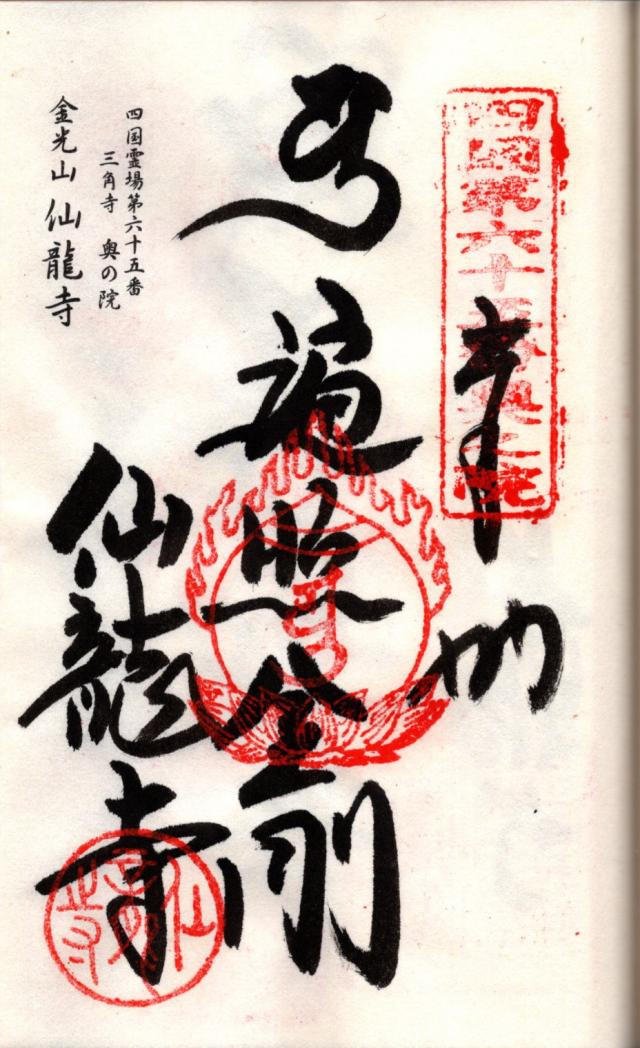 四国第六十五番奥之院
奉
遍照金剛
仙龍寺
仙龍寺
四国霊場第六十五番
三角寺 奥の院
金光山 仙龍寺